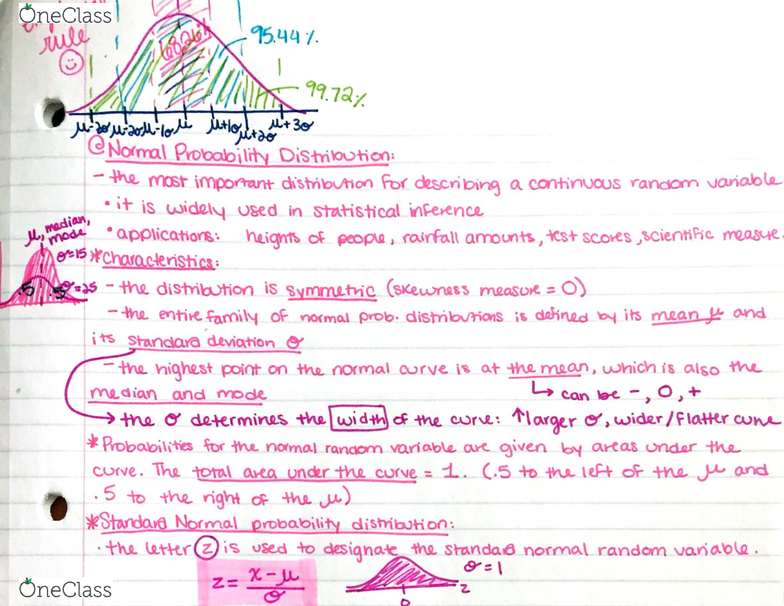 OneClass
rule
68.26%
95.44%
99.72%
μ-3σ μ-2σ μ-1σ μ μ+1σ μ+2σ μ+3σ
@Normal Probability Distribution:
- the most important distribution for describing a continuous random variable
• it is widely used in statistical inference
• applications: heights of people, rainfall amounts, test scores, scientific measure.
μ, median,
mode
σ=15
.5 .5 σ=25
*Characteristics:
- the distribution is symmetric (skewness measure = 0)
- the entire family of normal prob. distributions is defined by its mean μ and
its standard deviation σ
- the highest point on the normal curve is at the mean, which is also the
median and mode
↳ can be -, 0, +
→ the σ determines the width of the curve: ↑larger σ, wider/flatter curve
*Probabilities for the normal random variable are given by areas under the
curve. The total area under the curve = 1. (.5 to the left of the μ and
.5 to the right of the μ)
*Standard Normal probability distribution:
• the letter z is used to designate the standard normal random variable.
z = x-μ / σ
σ=1
z
0
OneClass